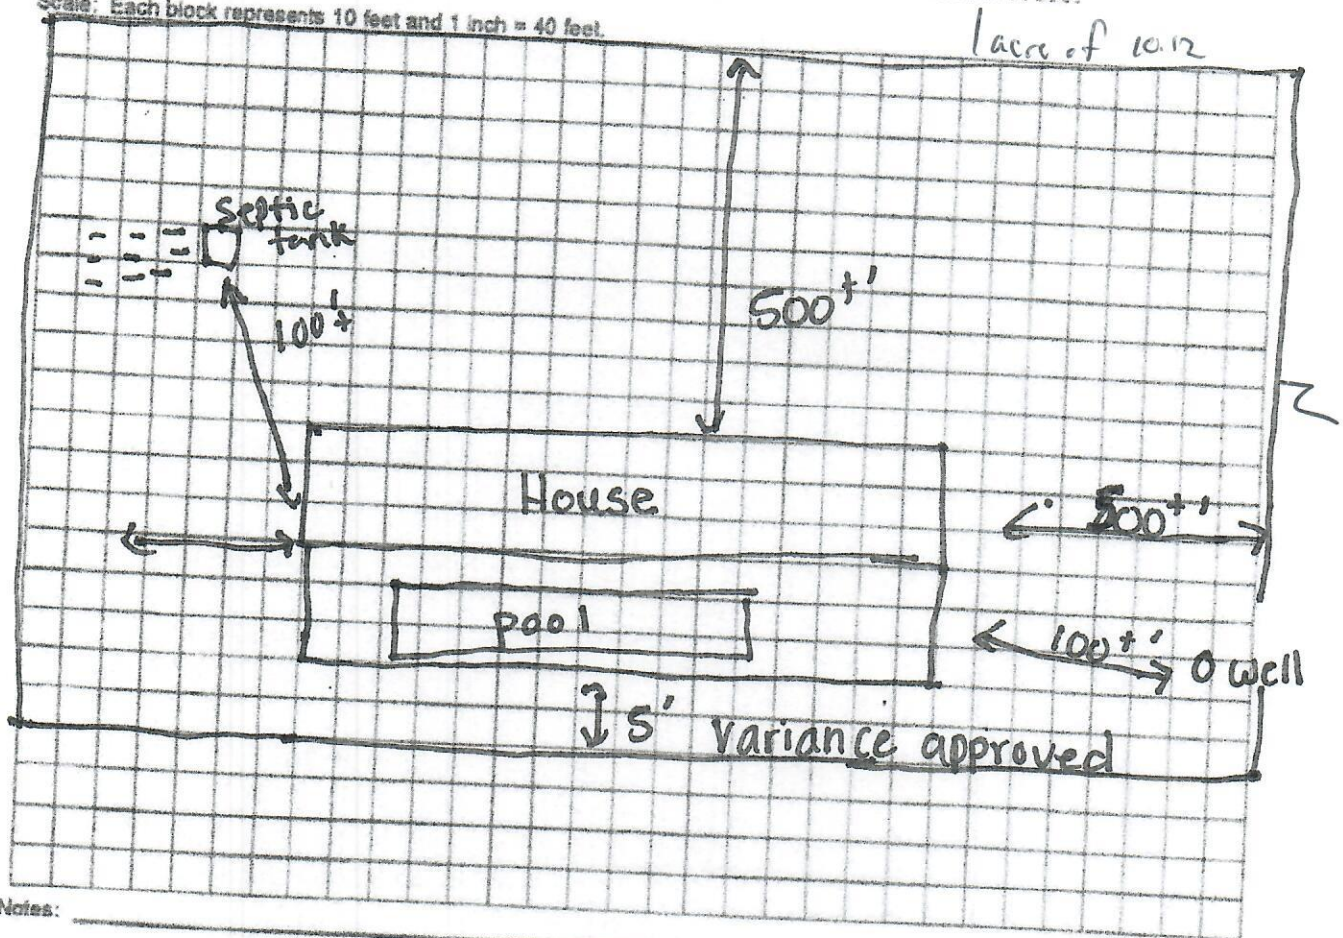 Scale: Each block represents 10 feet and 1 inch = 40 feet.
1 acre of 10.12
Septic
tank
100'+
500+'
House
500+'
pool
100+'
O well
5' Variance approved
Notes: